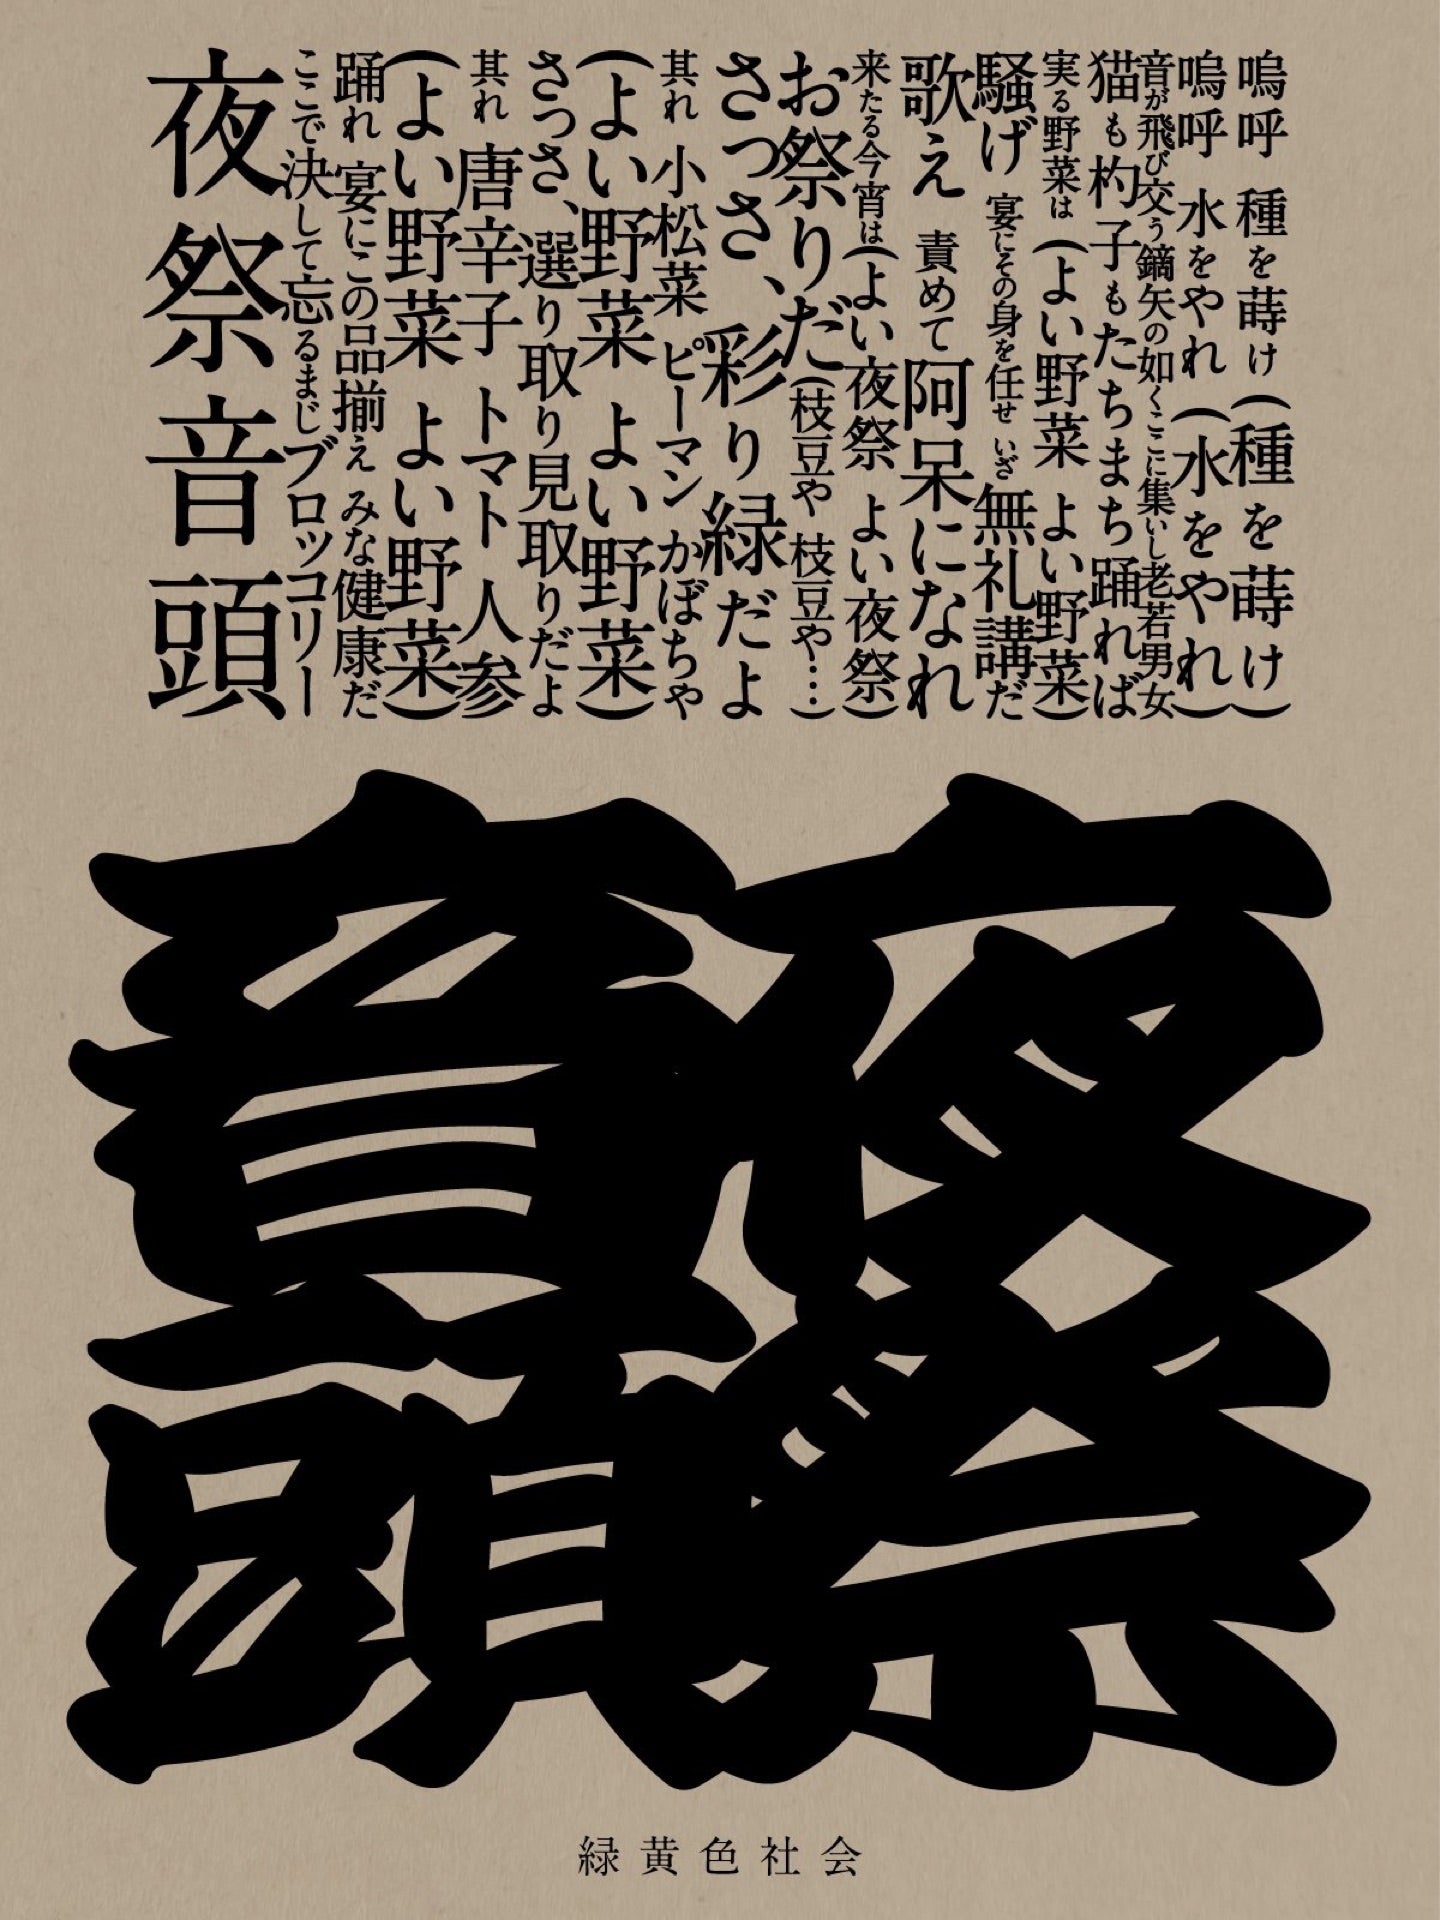 嗚呼 種を蒔け(種を蒔け)
嗚呼 水をやれ(水をやれ)
音が飛び交う鏑矢の如くここに集いし老若男女
猫も杓子もたちまち踊れば
実る野菜は(よい野菜 よい野菜)
騒げ 宴にその身を任せ いざ無礼講だ
歌え 責めて阿呆になれ
来たる今宵は(よい夜祭 よい夜祭)
お祭りだ(枝豆や 枝豆や…)
さっさ、彩り緑だよ
其れ 小松菜 ピーマン かぼちゃ
(よい野菜 よい野菜)
さっさ、選り取り見取りだよ
其れ 唐辛子 トマト 人参
(よい野菜 よい野菜)
踊れ 宴にこの品揃え みな健康だ
ここで決して忘るまじブロッコリー
夜祭音頭
夜祭
音頭
緑黄色社会